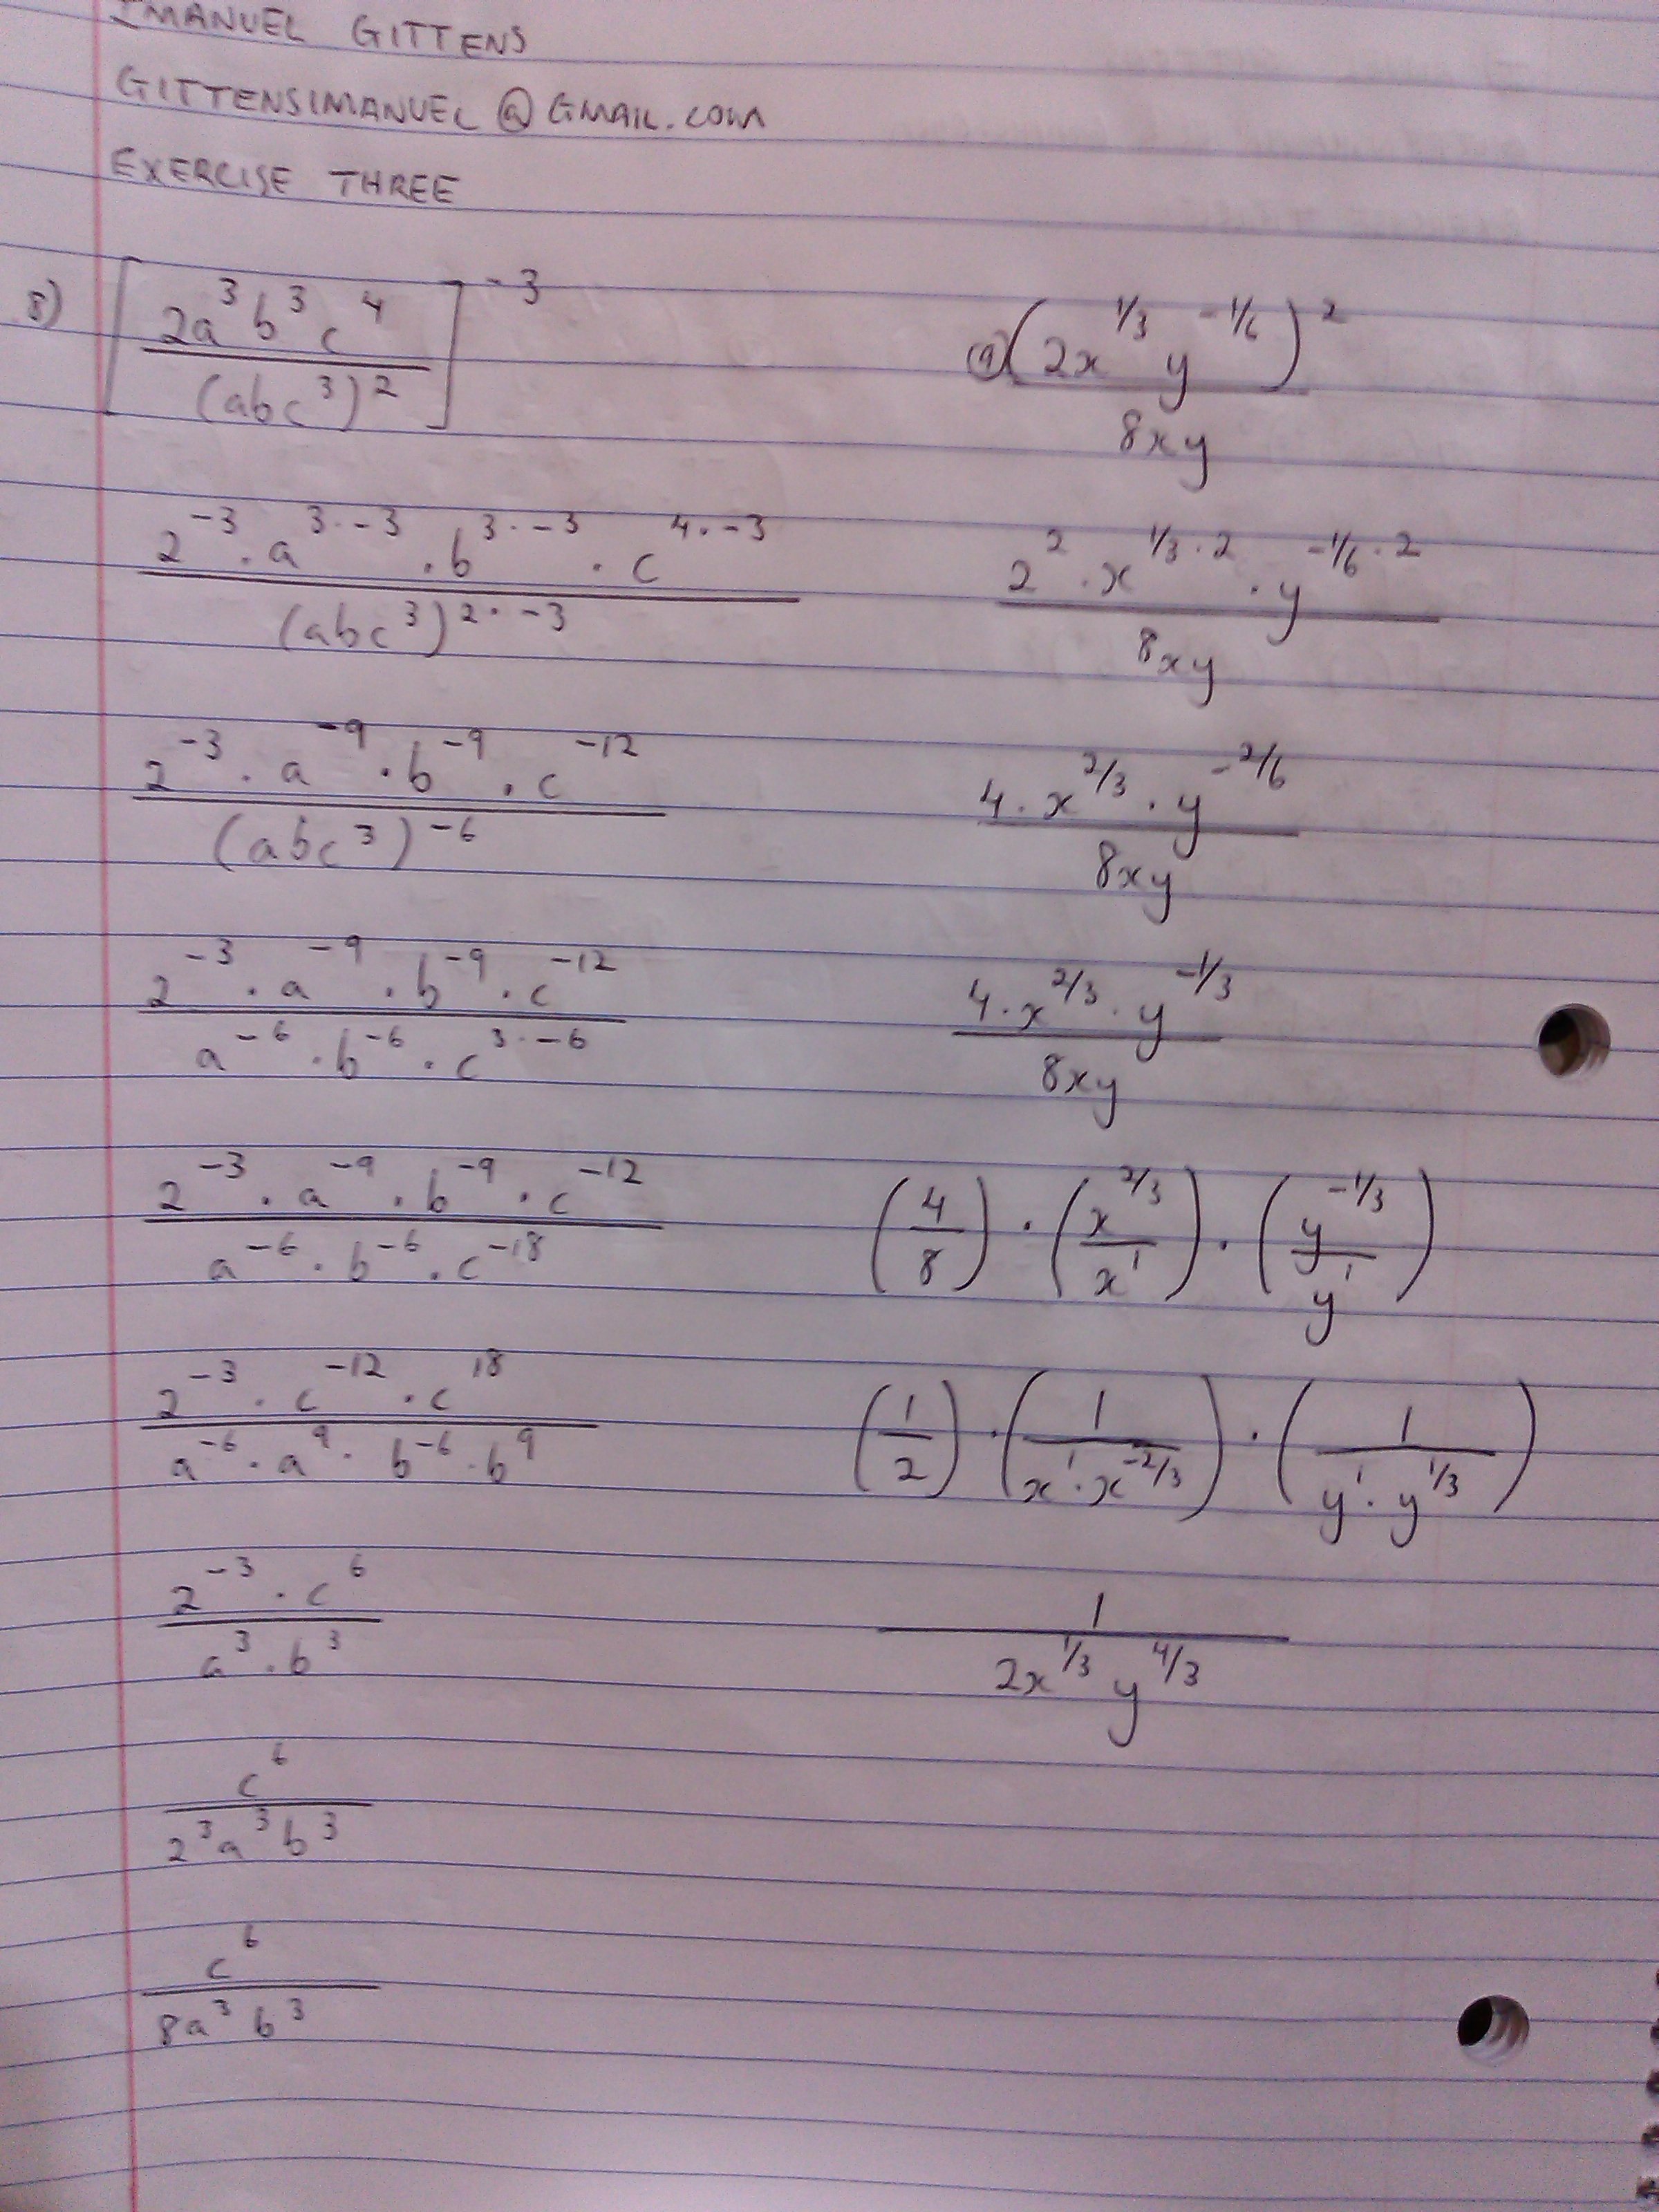 IMANUEL GITTENS
GITTENSIMANUEL@GMAIL.COM
EXERCISE THREE
8) [2a^3 b^3 c^4 / (abc^3)^2]^-3
2^-3 · a^3·-3 · b^3·-3 · c^4·-3 / (abc^3)^2·-3
2^-3 · a^-9 · b^-9 · c^-12 / (abc^3)^-6
2^-3 · a^-9 · b^-9 · c^-12 / a^-6 · b^-6 · c^3·-6
2^-3 · a^-9 · b^-9 · c^-12 / a^-6 · b^-6 · c^-18
2^-3 · c^-12 · c^18 / a^-6 · a^9 · b^-6 · b^9
2^-3 · c^6 / a^3 · b^3
c^6 / 2^3 a^3 b^3
c^6 / 8a^3 b^3
9) (2x^1/3 y^-1/6)^2 / 8xy
2^2 · x^1/3·2 · y^-1/6·2 / 8xy
4 · x^2/3 · y^-2/6 / 8xy
4 · x^2/3 · y^-1/3 / 8xy
(4/8) · (x^2/3 / x^1) · (y^-1/3 / y^1)
(1/2) · (1 / x^1 · x^-2/3) · (1 / y^1 · y^1/3)
1 / 2x^1/3 y^4/3